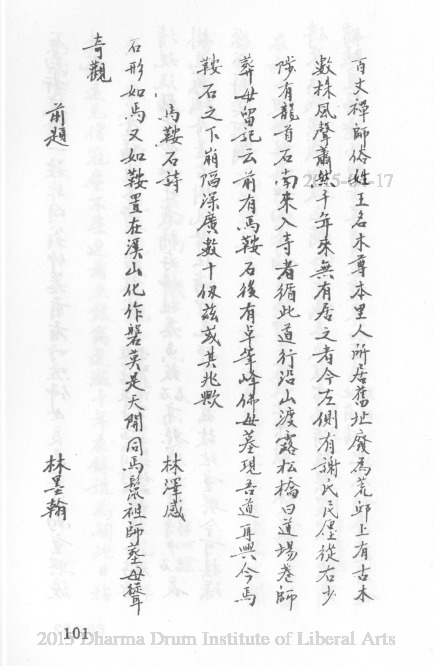 百丈禪師俗姓王名木尊本里人所居舊址廢為荒邱上有古木
數株風聲肅然千年來無有居之者今左側有謝氏民屋後右少
陟有龍首石南來入寺者循此道行沿山渡露松橋曰道場卷師
葬母留記云前有馬鞍石後有卓筆峰佛母墓現吾道再興今馬
鞍石之下崩陷深廣數十仞茲或其兆歟
馬鞍石詩 林澤蔵
石形如馬又如鞍置在溪山化作磐莫是天閒同馬鬣祖師塟母聳
奇觀
前題 林墨翰
101
2015-01-17
2015 Dharma Drum Institute of Liberal Arts